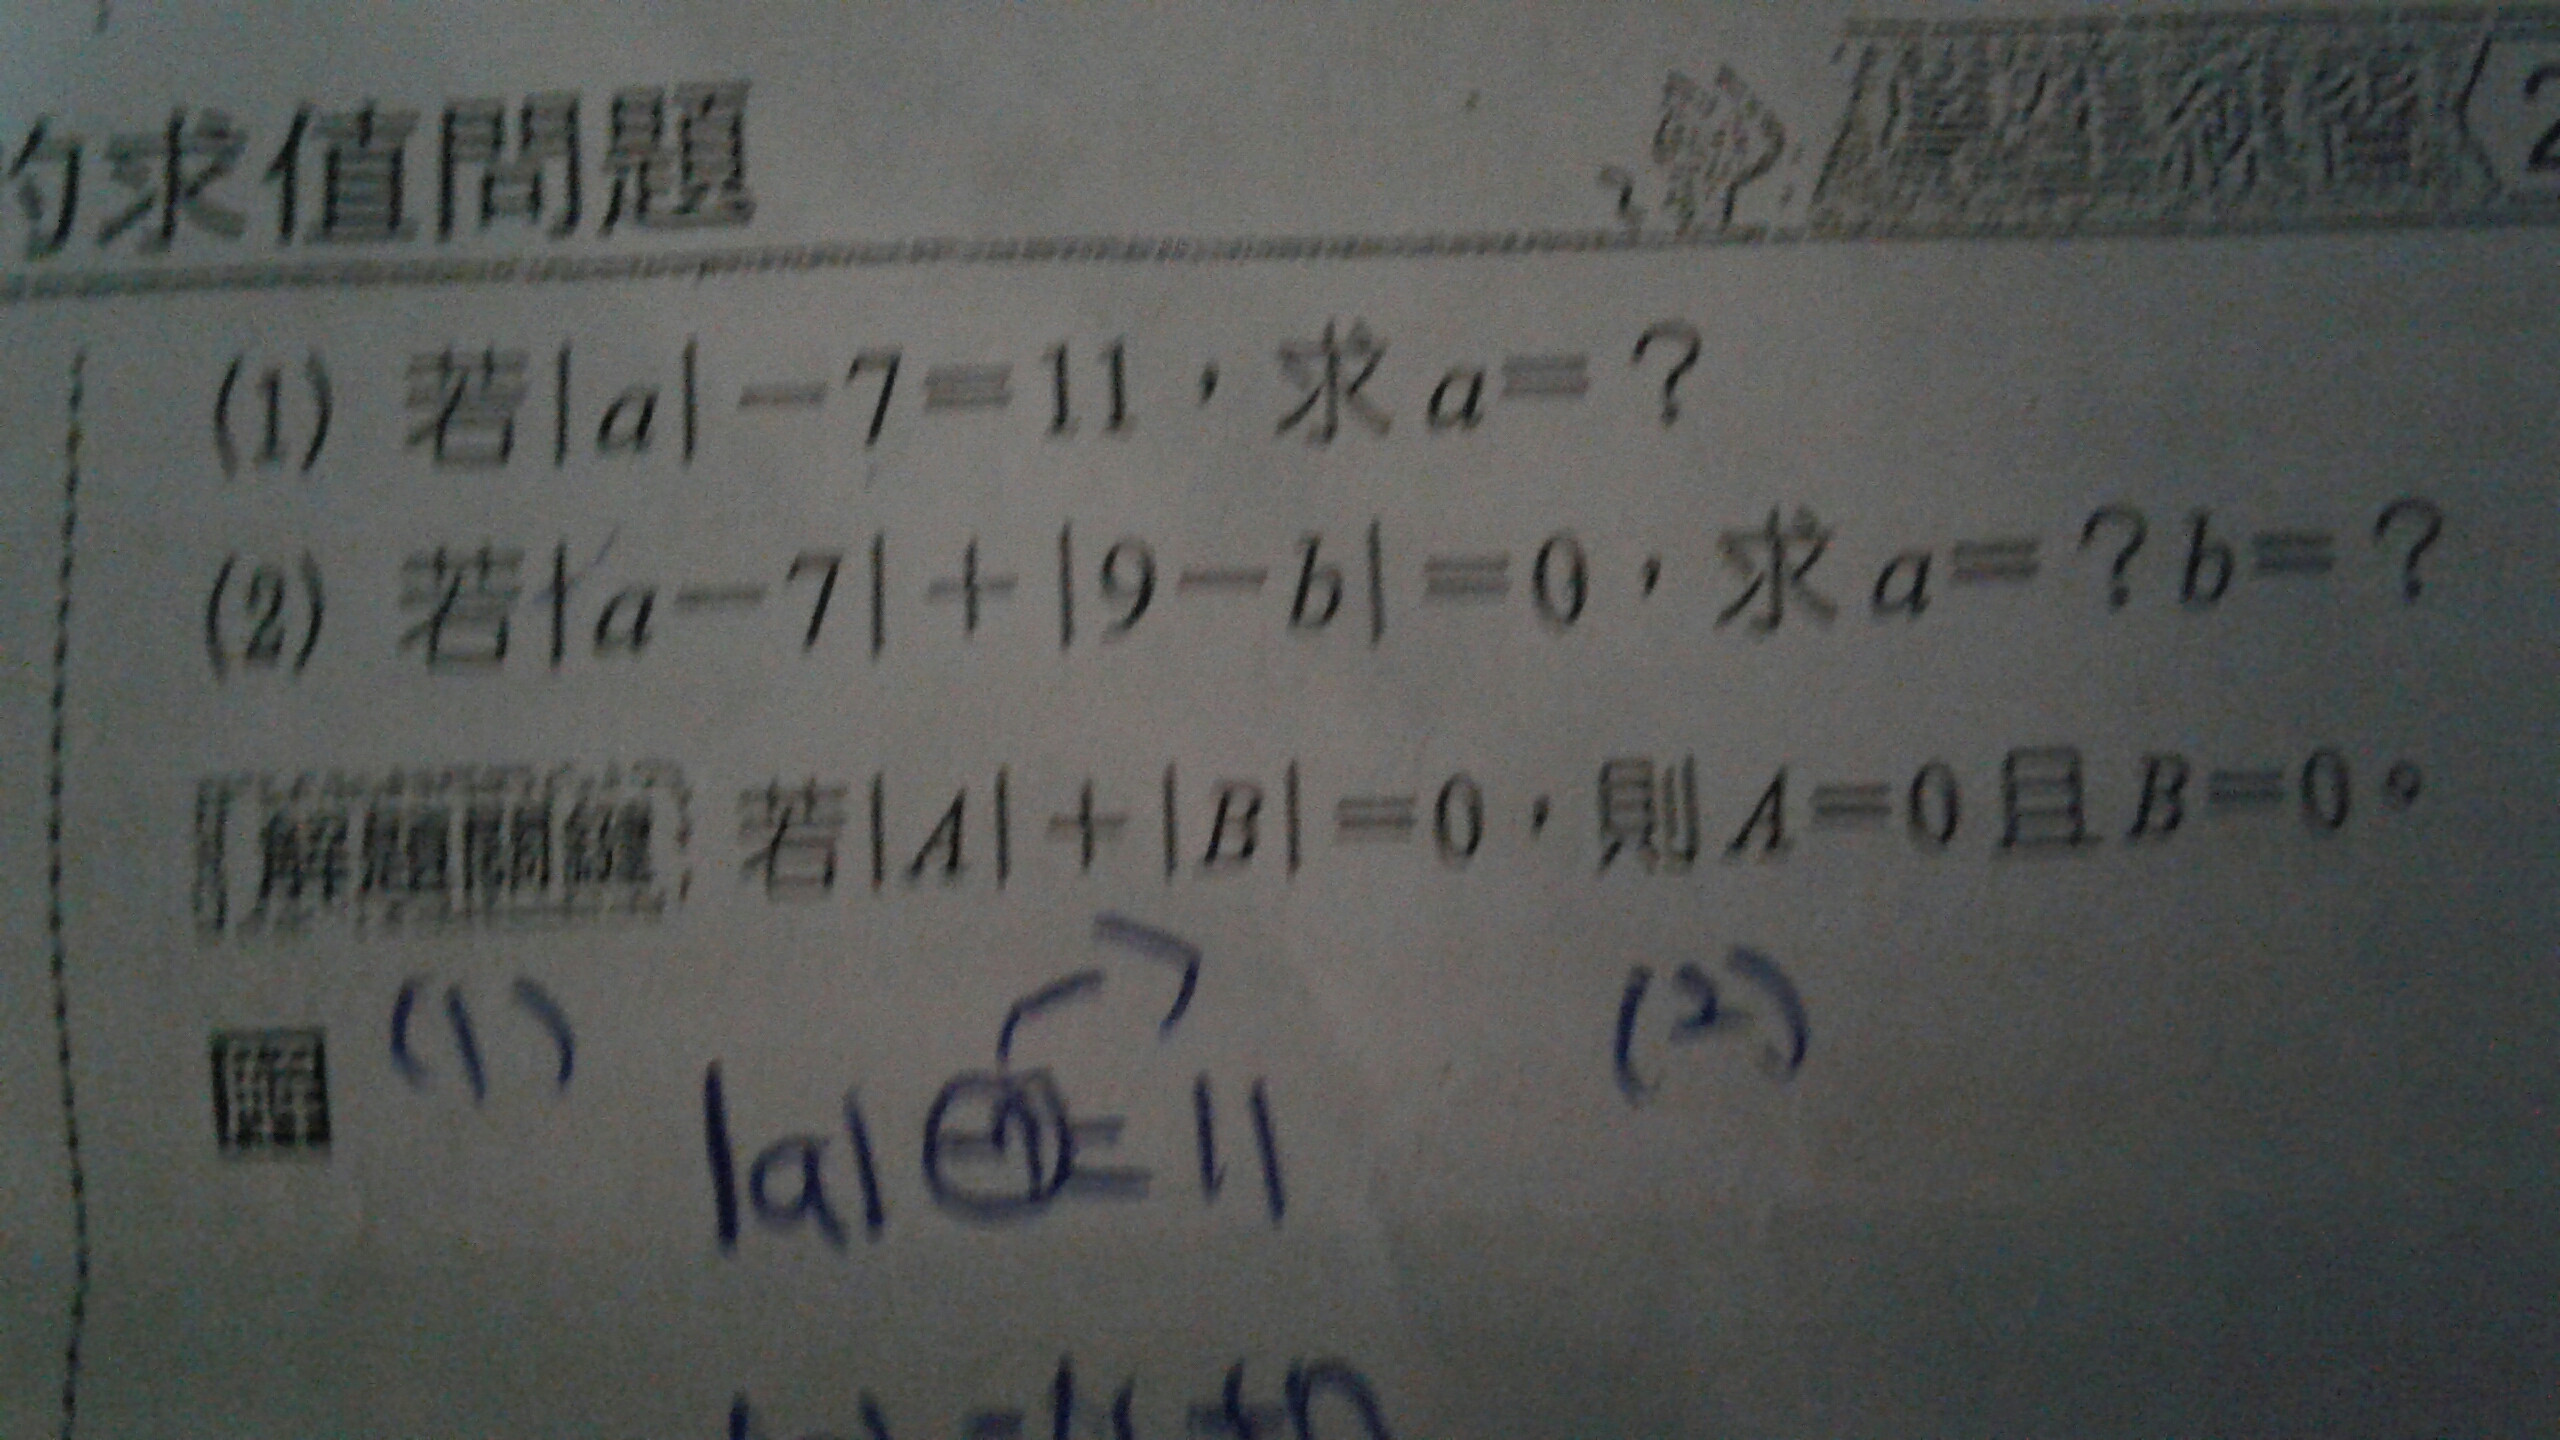 的求值問題
學生練習 2
(1) 若|a|－7＝11，求a＝？
(2) 若|a－7|＋|9－b|＝0，求a＝？b＝？
解題關鍵 若|A|＋|B|＝0，則A＝0且B＝0。
解 (1) (2)
|a| -7 = 11
|a| = 11 +7